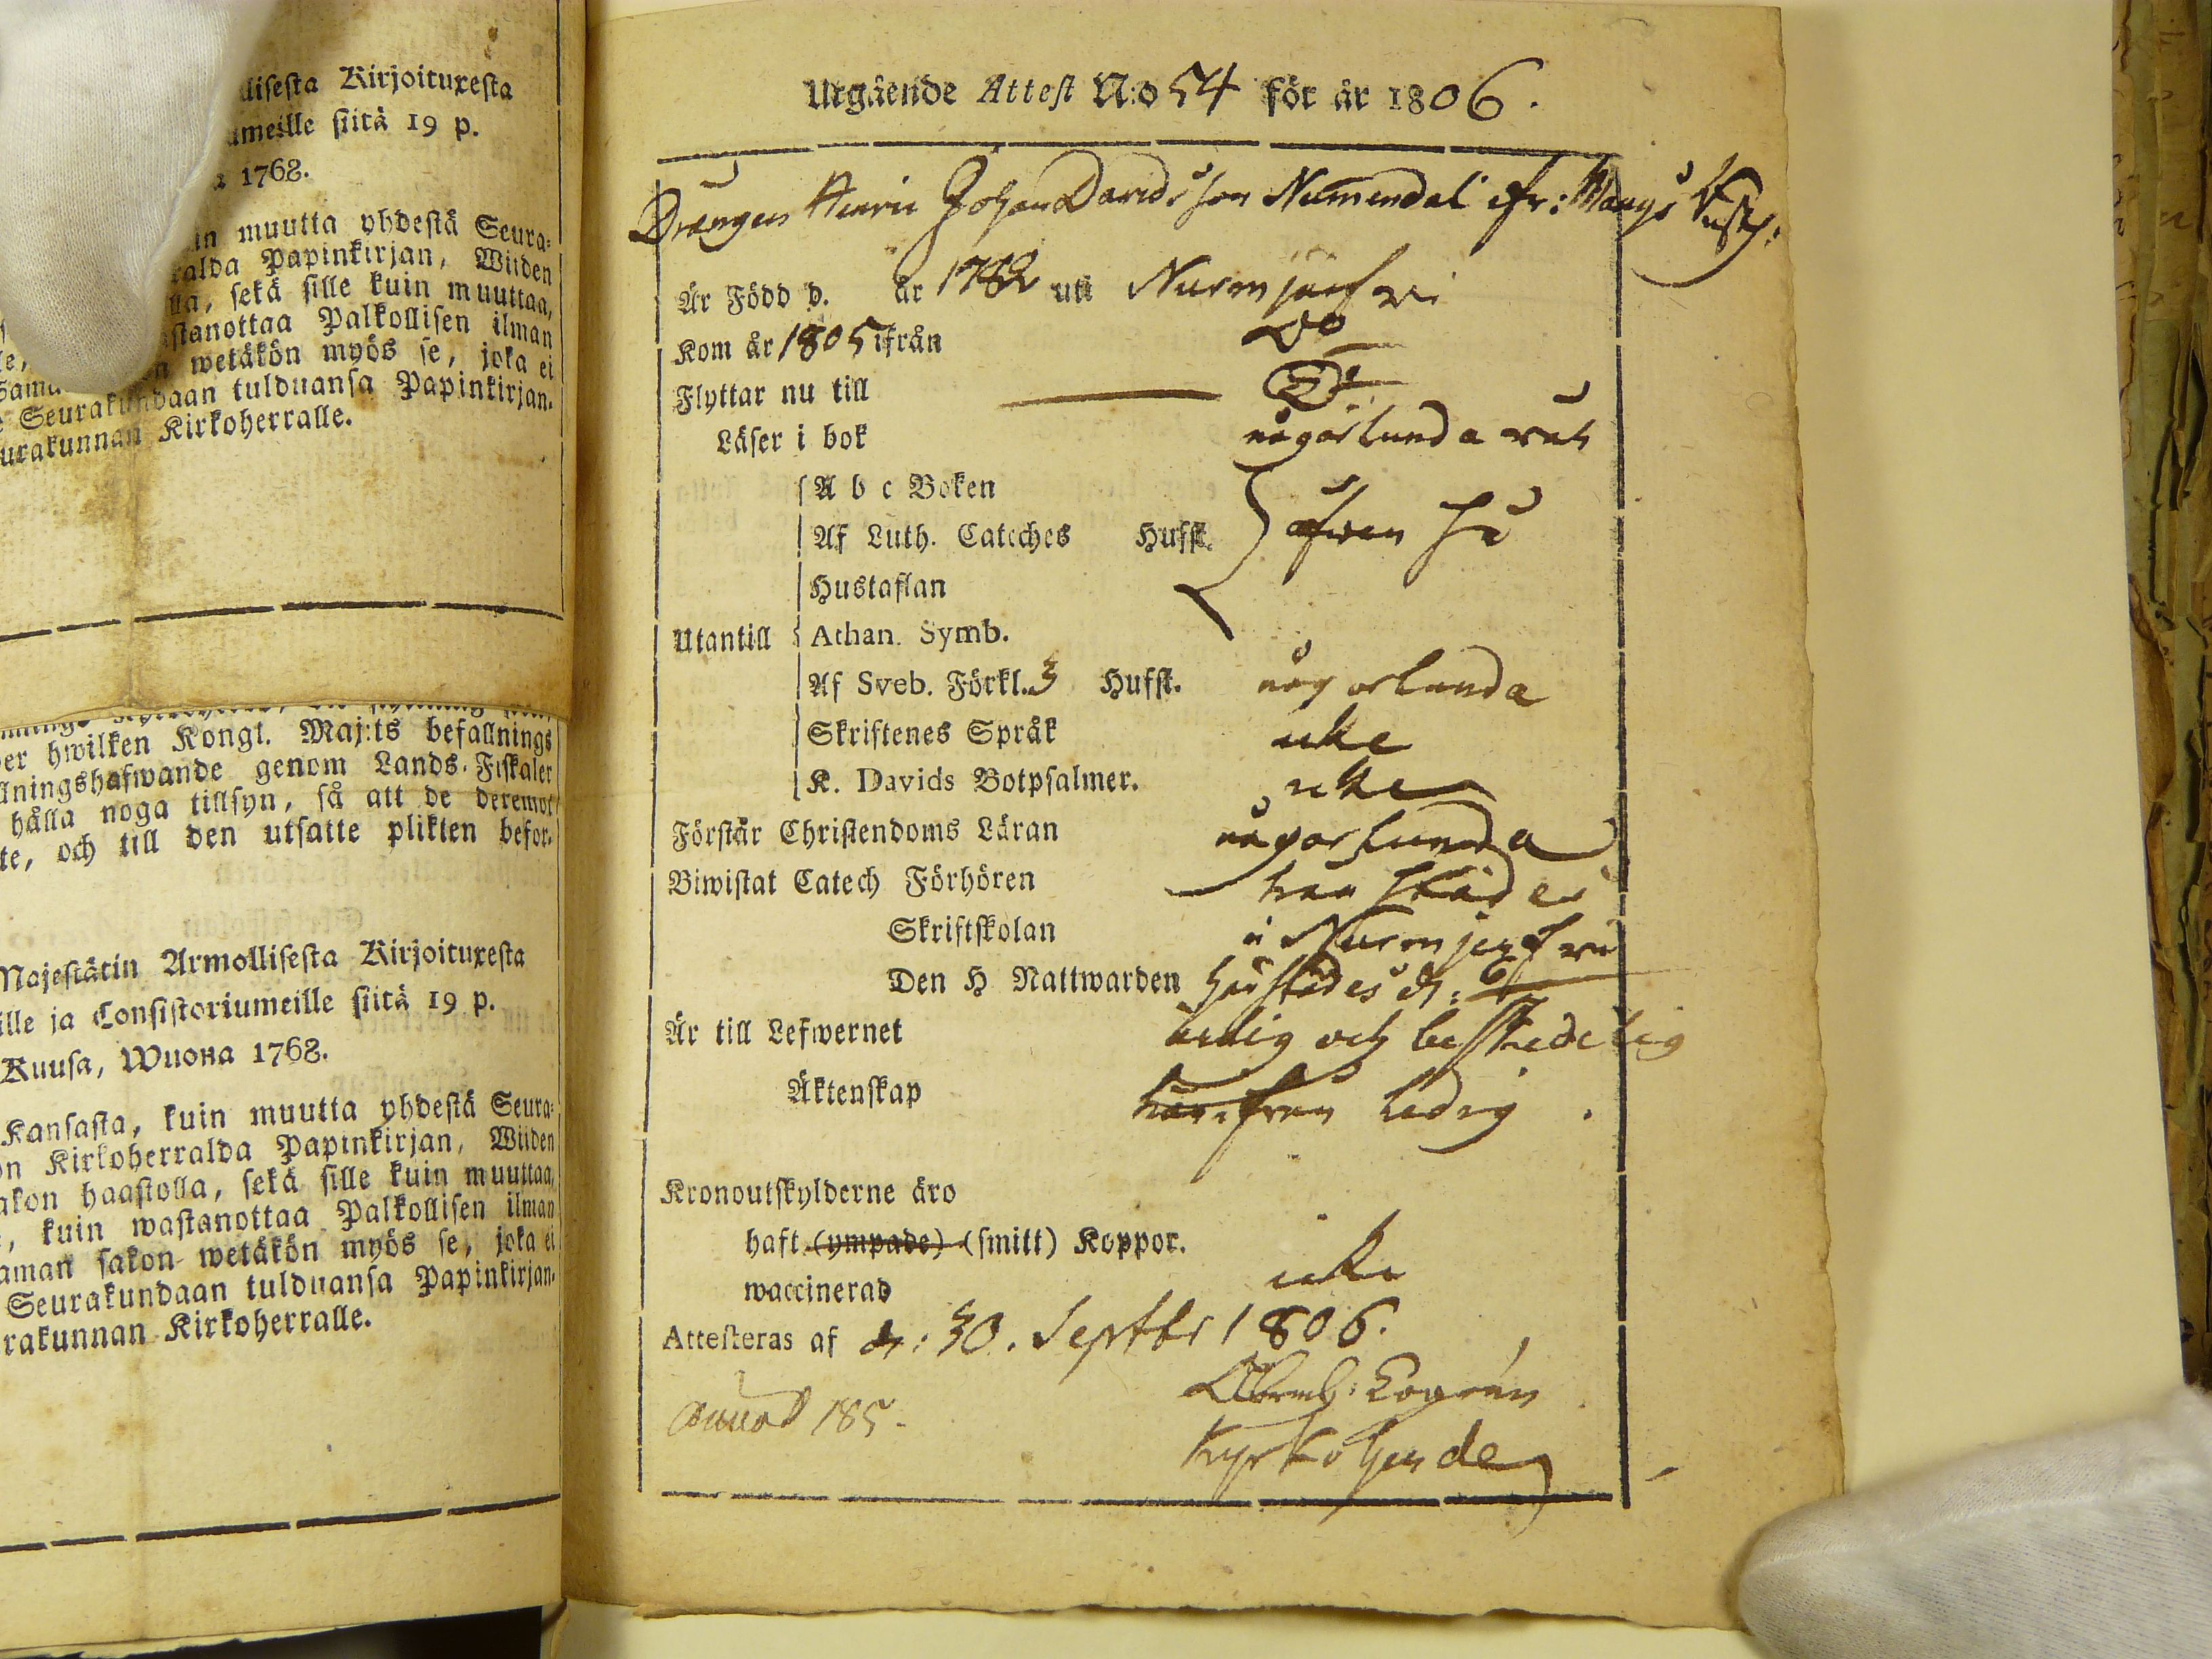 llisesta Kirjoituxesta
umeille siitä 19 p.
a 1768.
in muutta yhdestä Seura-
ralda Papinkirjan, Wiiden
lla, sekä sille kuin muuttaa,
astanottaa Palkollisen ilman
n wetäkön myös se, joka ei
Seurakundaan tulduansa Papinkirjan.
urakunnan Kirkoherralle.
er hwilken Kongl. Maj:ts befallnings
llningshafwande genom Lands-Fiskaler
hålla noga tillsyn, så att de deremot
te, och till den utsatte plikten befor-
Majestätin Armollisesta Kirjoituxesta
ille ja Consistoriumeille siitä 19 p.
Kuusa, Wuona 1768.
Kansasta, kuin muutta yhdestä Seura-
on Kirkoherralda Papinkirjan, Wiiden
akon haastolla, sekä sille kuin muuttaa,
, kuin wastanottaa Palkollisen ilman
aman sakon wetäkön myös se, joka ei
Seurakundaan tulduansa Papinkirjan-
rakunnan Kirkoherralle.
Utgående Attest N:o 54 för år 1806.
Drängen Henric Johan Davidsson Numendal ifr: 
Är Född d. år 1782 uti Nurmijerfvi
Kom år 1805 ifrån Do
Flyttar nu till Do
Läser i bok någorlunda väl
A b c Boken
Af Luth. Cateches Hufst. äfven så
Hustaflan
Utantill Athan. Symb.
Af Sveb. Förkl. 3 Hufst. någorlunda
Skriftenes Språk icke
K. Davids Botpsalmer. icke
Förstår Christendoms Läran någorlunda
Biwistat Catech Förhören
Skriftskolan i Nurmijerfvi
Den H Nattwarden
Är till Lefwernet ärlig och beskedelig
Äktenskap härifrån ledig.
Kronoutskylderne äro
haft (ympade) (smitt) Koppor.
waccinerad icke
Attesteras af d: 30. Septbr 1806.
185.
Kyrkoherde